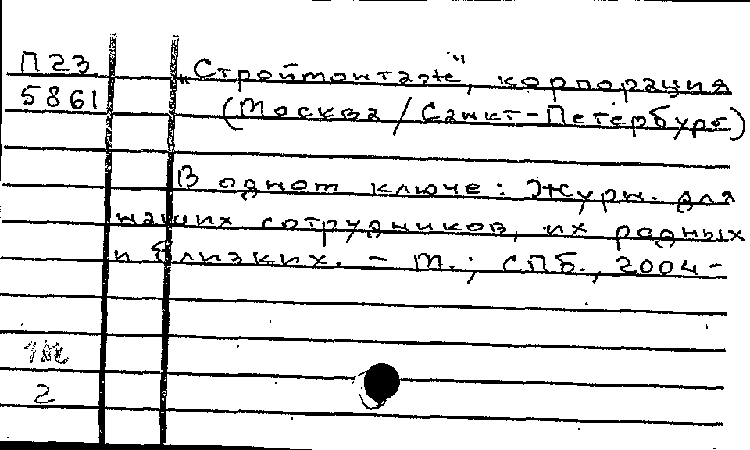 П23 „Строймонтаж“, корпорация
5861 (Москва / Санкт-Петербург)
В одном ключе: Журн. для
наших сотрудников, их родных
и близких. - М.; СПБ., 2004-
2